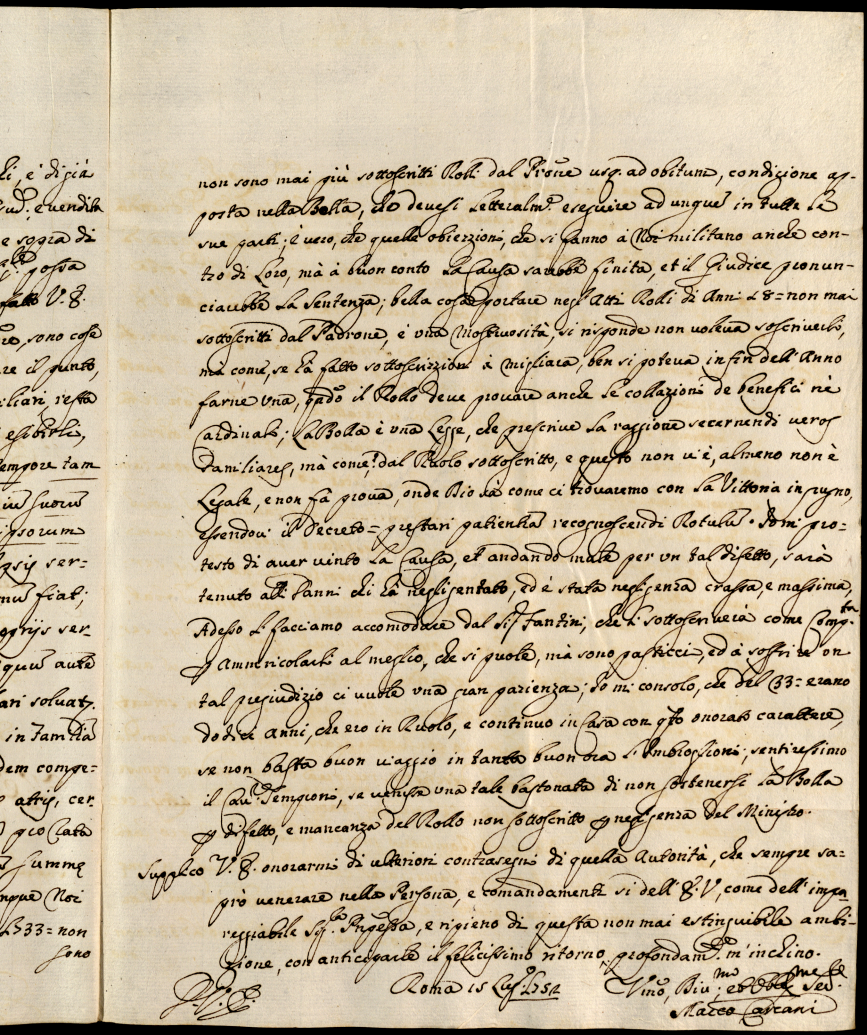 li, è di già
e vendita
e sopra di
possa
fatto V. E.
re, sono cose
re il punto,
iliari, resta
esibirli,
empore tam
ipsorum
ipsis ser=
fiat;
oprijs ser=
ari soluat.
in Familia
dem compe=
cer
pro rata
summę
Noi
1733= non
sono
non sono mai più sottoscritti Rolli dal Prone usq. ad obitum, condizione ap=
posta nella Bolla, che devesi Letteralm.e eseguire ad unguem in tutte le
sue parti; è vero, che quelle obiezzioni, che si fanno à Noi militano anche con=
tro di Loro, mà à buon conto La Causa sarebbe finita, et il Giudice pronun=
ciarebbe La Sentenza; bella cosa portare negl'Atti Rolli di Anni 18= non mai
sottoscritti dal Padrone, è una mostruosità, si risponde non voleva soscriverli,
mà come, se hà fatto soscrizzioni à migliara, ben si poteva in fin dell'Anno
farne una, il Rollo deve provare anche le collazioni de benefici nè
Cardinali; La Bolla è una Legge, che prescrive La raggione secernendi veros
Familiares, mà come? dal Ruolo sottoscritto, e questo non v'è, almeno non è
Legale, e non fà prova, onde Dio sà come ci trovaremo con La Vittoria in pugno,
essendovi il Decreto= prestari patientiam recognoscendi Rotulum. Io mi pro=
testo di aver vinto La Causa, et andando male per un tal difetto, sarà
tenuto alli Danni chi hà negligentato, ed è stata negligenza crassa, e massima,
Adesso Li facciamo accomodare dal Sig.r Fantini, che Li sottoscriverà come Comp.ta
p ammiricolarli al meglio, che si puole, mà sono pasticci, ed à soffrire un
tal pregiudizio ci vuole una gran pazienza; Io mi consolo, che del 33= erano
dodici anni, che ero in Ruolo, e continuo in Casa con qsto onorato carattere,
se non basta buon viaggio in tanta buon ora sentiressimo
il Cau.r Sempioni, se venisse una tale bastonata di non sostenersi La Bolla
p difetto, e mancanza del Rollo non sottoscritto p negligenza del Ministro.
Supplico V. E. onorarmi di ulteriori contrasegni di quella Autorità, che sempre sa=
prò venerare nella Persona, e comandamenti si dell'E. V, come dell'impa=
reggiabile Sig.ra Prpessa, e ripieno di questa non mai estinguibile ambi=
zione, con anticiparle il felicissimo ritorno, profondam.e m'inchino.
Roma 15 Lug.o 1752 Vmo, Div.mo, ed Obl.mo Ser.
Marco Carcani